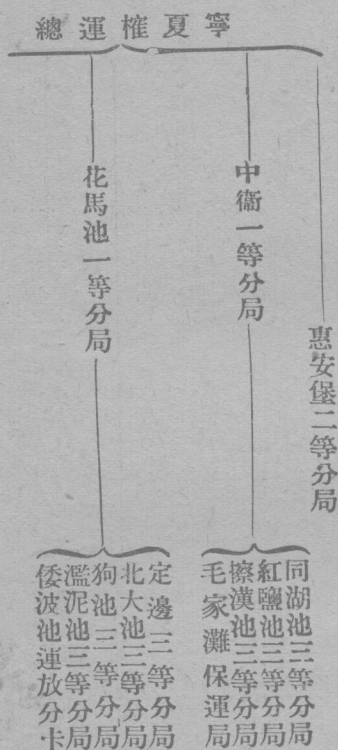 寧夏榷運總
惠安堡二等分局
中衞一等分局
同湖池三等分局
紅鹽池三等分局
擦漢池三等分局
毛家灘保運局
花馬池一等分局
定邊三等分局
北大池三等分局
狗池三等分局
濫泥池三等分局
倭波池運放分卡